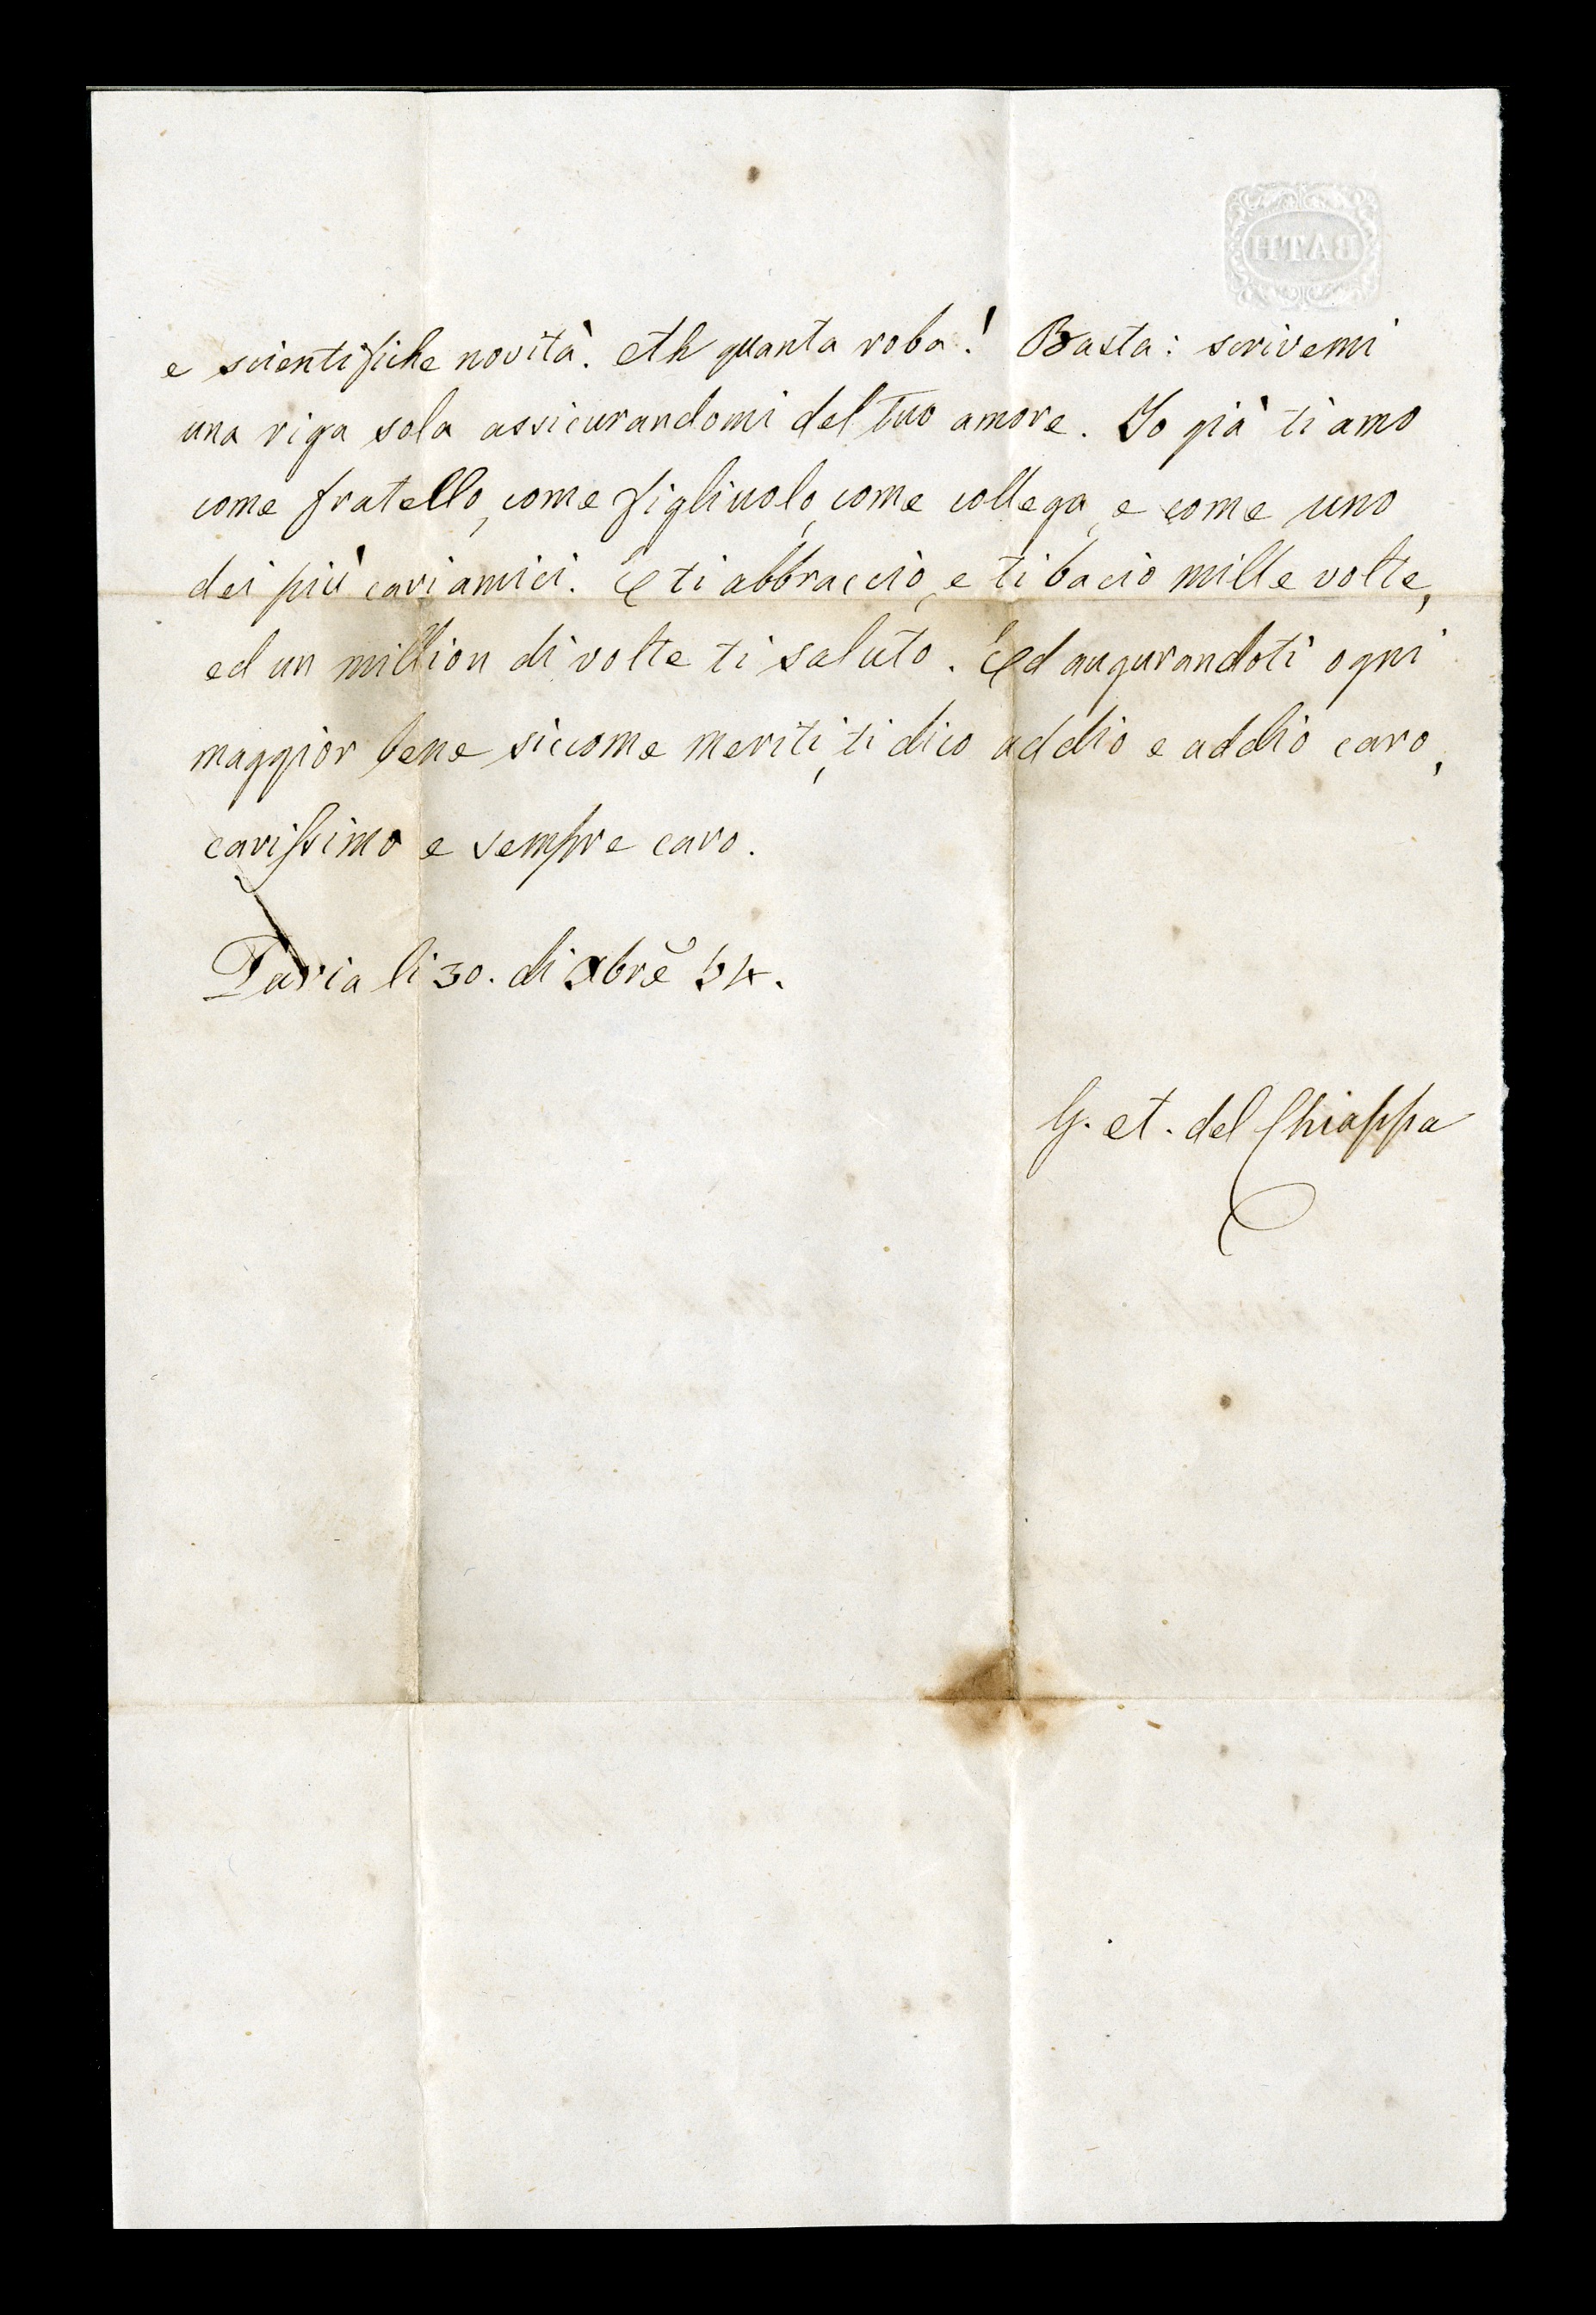 BATH
e scientifiche novità. Ah quanta roba! Basta: scrivemi
una riga sola assicurandomi del tuo amore. Io già ti amo
come fratello, come figliuolo, come collega, e come uno
dei più cari amici. E ti abbraccio, e ti bacio mille volte,
ed un million di volte ti saluto. Ed augurandoti ogni
maggior bene siccome meriti, ti dico addio e addio caro,
carissimo e sempre caro.
Pavia li 30. di Xbrē 54.
G. A. del Chiappa